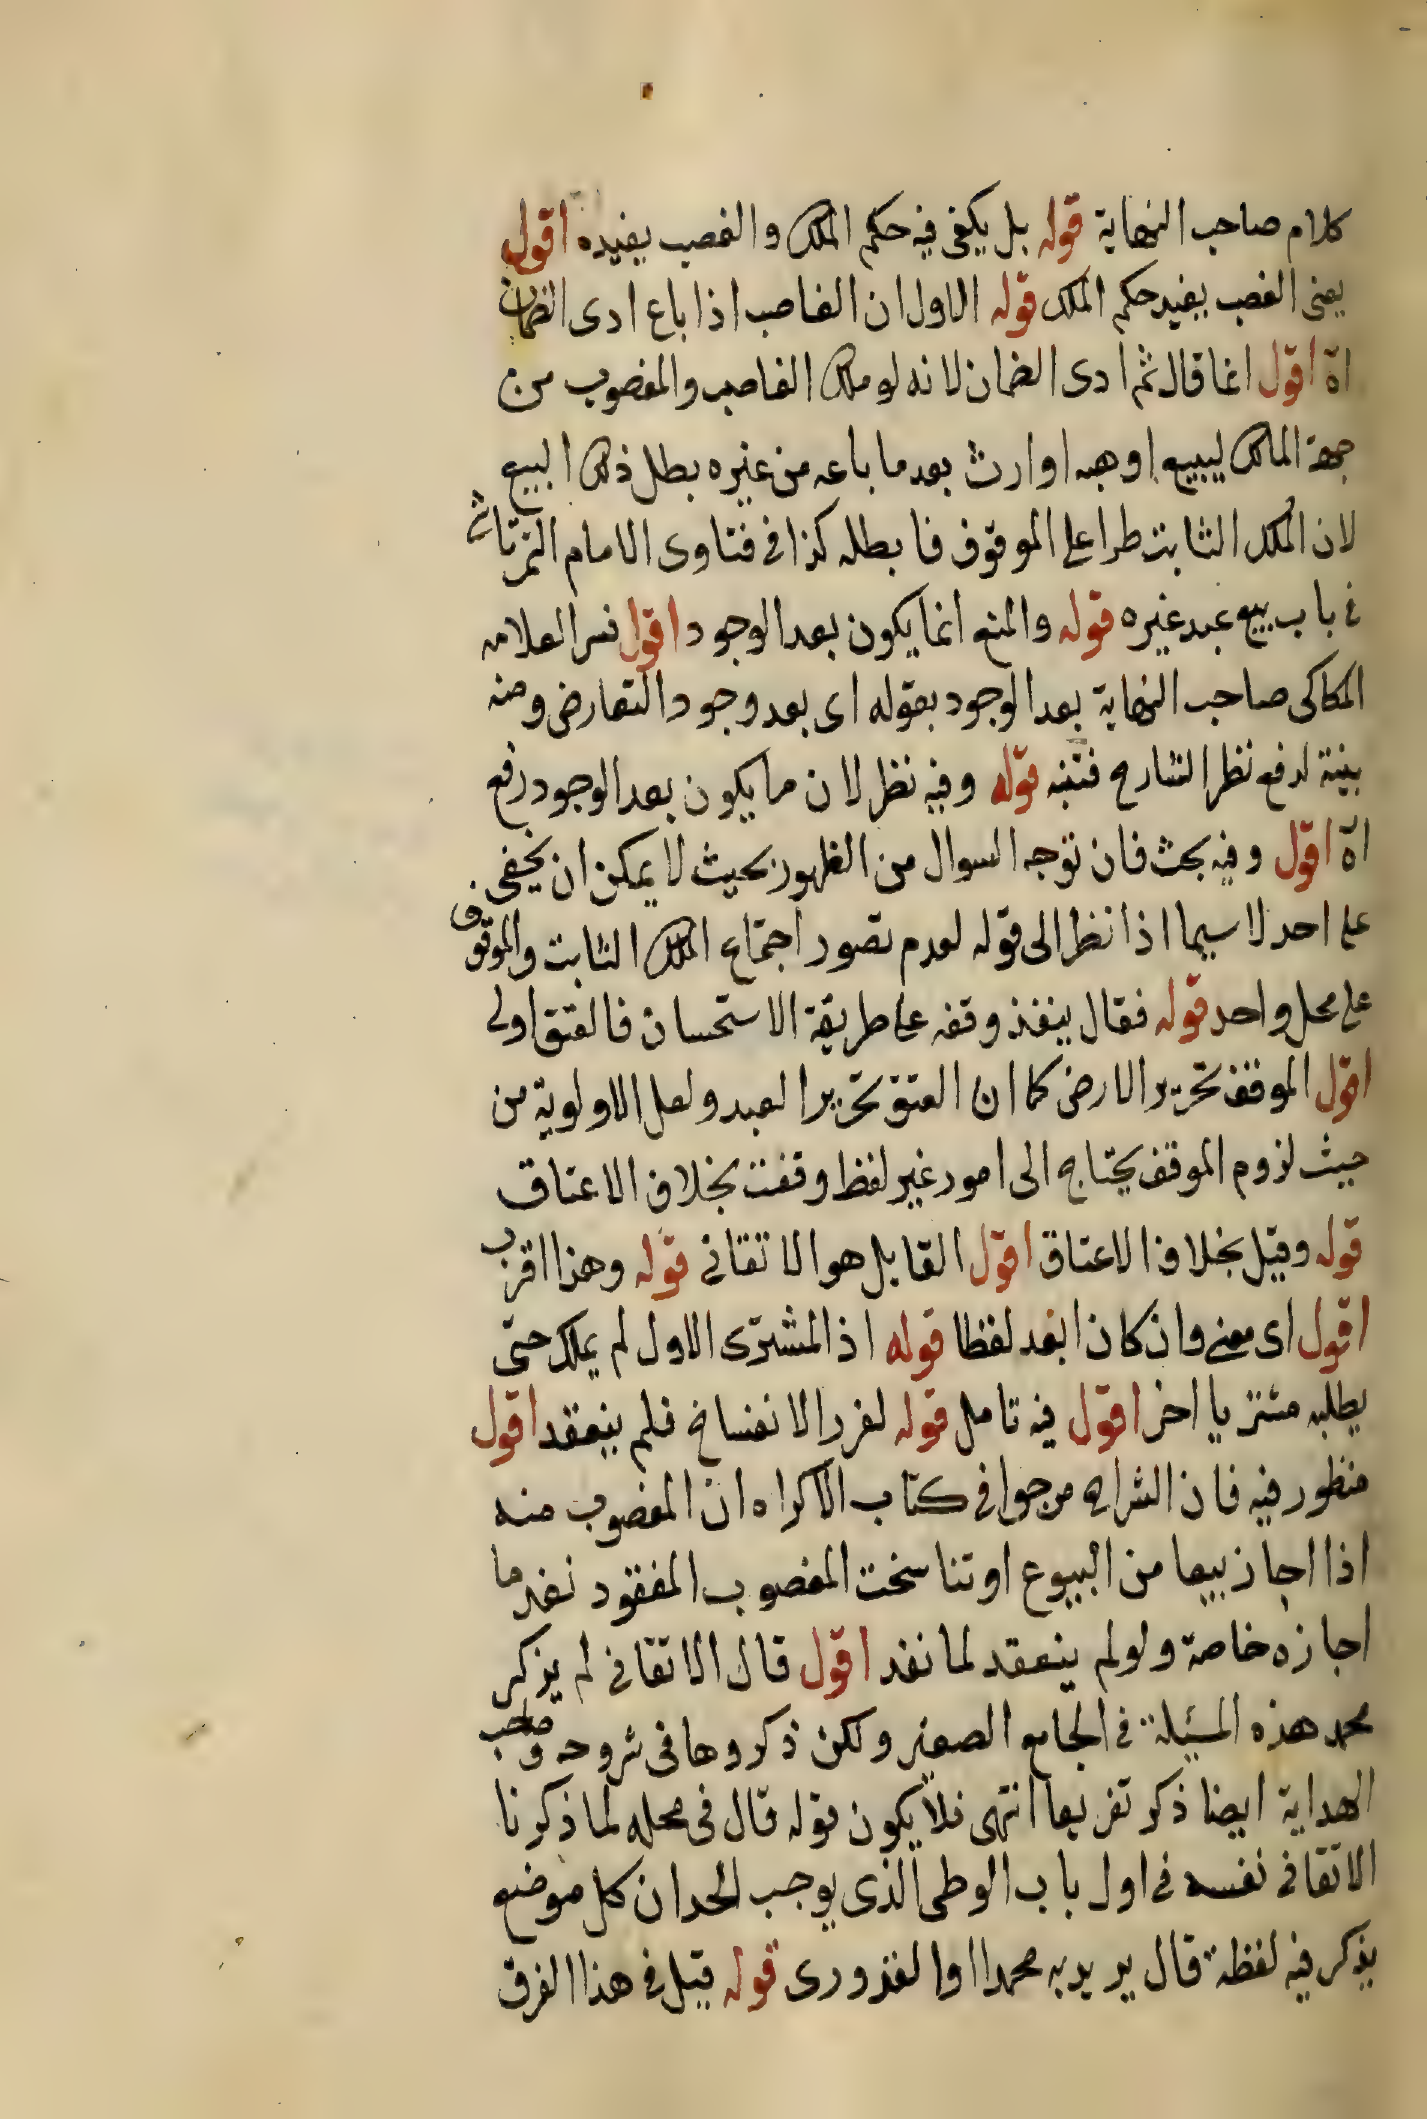 كلام صاحب النهاية قوله بل يكفى فيه حكم الملك والغصب يفيده اقول
يعنى الغصب يفيد حكم الملك قوله الاول ان الغاصب اذا باع ادى الضمان
اه اقول انما قال ثم ادى الضمان لانه لو ملك الغاصب والمغصوب من
جهة المالك لبيع او هبه او ارث بعد ما باعه من غيره بطل ذلك البيع
لان الملك الثابت طرا على الموقوف فابطله كذا فى فتاوى الامام التمرتاشى
فى باب بيع عبد غيره قوله والمنع انما يكون بعد الوجود اقول فسر العلامه
الكاكى صاحب النهاية بعد الوجود بقوله اى بعد وجود التعارض ومنه
بينة لدفع نظر الشارح فتنبه قوله وفيه نظر لان ما يكون بعد الوجود رفع
اه اقول وفيه بحث فان توجه السوال من الظهور بحيث لا يمكن ان يخفى
على احد لا سيما اذا نظر الى قوله لعدم تصور اجتماع الملك الثابت والموقوف
على محل واحد قوله فقال ينفذ وقفه على طريقة الاستحسان فالعتق اولى
اقول الموقف تحرير الارض كما ان العتق تحرير العبد ولعل الاولوية من
حيث لزوم الموقف يحتاج الى امور غير لفظ وقفت بخلاف الاعتاق
قوله وقيل بخلاف الاعتاق اقول القايل هو الاتقانى قوله وهذا اقرب
اقول اى معنى وان كان ابعد لفظا قوله اذ المشترى الاول لم يملك حتى
يطلبه مشتريا اخر اقول فيه تامل قوله لغرر الانفساخ فلم ينعقد اقول
منظور فيه فان الشراح صرحوا فى كتاب الاكراه ان المغصوب منه
اذا اجاز بيعا من البيوع او تناسخت المغصوب المفقود نفذ ما
اجازه خاصة ولو لم ينعقد لما نفذ اقول قال الاتقانى لم يذكر
محمد هذه المسئلة فى الجامع الصغير ولكن ذكروها فى شروحه وصاحب
الهداية ايضا ذكر تفريعا انتهى فلا يكون قوله قال فى محله لما ذكرنا
الاتقانى نفسه فى اول باب الوطى الذى يوجب الحد ان كل موضع
يذكر فيه لفظة قال يريد به محمدا او القدورى قوله قيل فى هذا الفرق